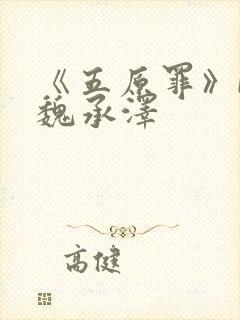 《五原罪》
魏承澤
高健